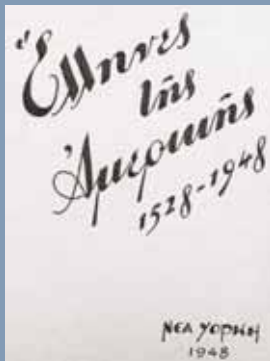 Ἕλληνες
τῆς
Ἀμερικῆς
1528-1948
ΝΕΑ ΥΟΡΚΗ
1948